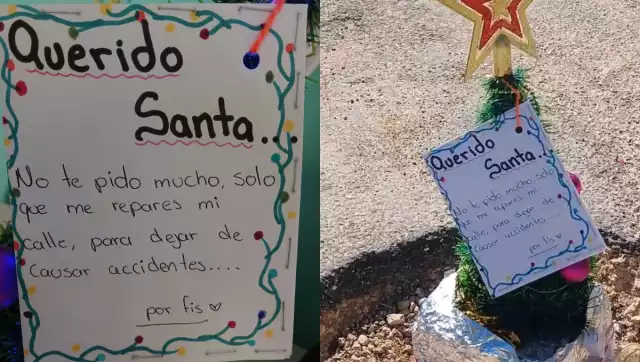 Querido
Santa..
No te pido mucho, solo
que me repares mi
calle, para dejar de
causar accidentes....
por fis ♡
Querido
Santa...
No te pido mucho, solo
que me repares mi
calle, para dejar de
causar accidentes....
por fis ♡